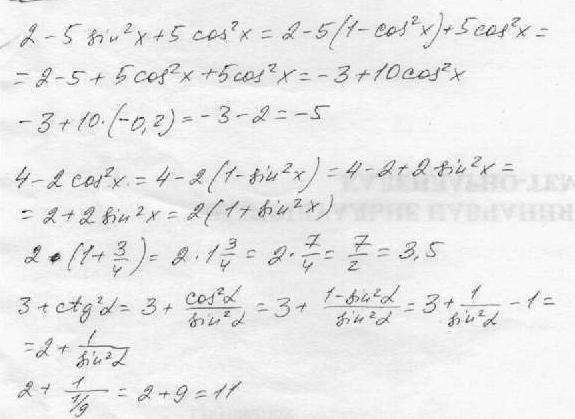 2 - 5 sin²x + 5 cos²x = 2 - 5(1 - cos²x) + 5cos²x =
= 2 - 5 + 5cos²x + 5cos²x = -3 + 10cos²x
-3 + 10·(-0,2) = -3 - 2 = -5
4 - 2cos²x = 4 - 2(1 - sin²x) = 4 - 2 + 2 sin²x =
= 2 + 2 sin²x = 2(1 + sin²x)
2·(1 + 3/4) = 2·1 3/4 = 2·7/4 = 7/2 = 3,5
3 + ctg²α = 3 + cos²α/sin²α = 3 + 1-sin²α/sin²α = 3 + 1/sin²α - 1 =
= 2 + 1/sin²α
2 + 1/1/9 = 2 + 9 = 11